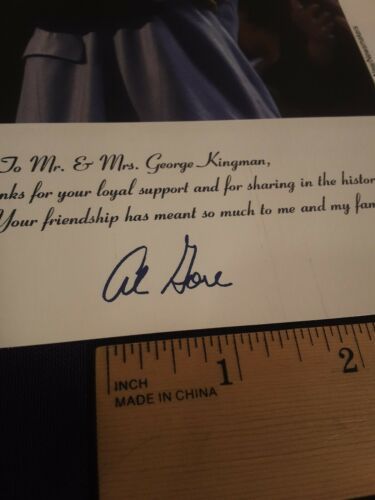 To Mr. & Mrs. George Kingman,
for your loyal support and for sharing in the
Your friendship has meant so much to me and my
Al Gore
INCH 1 2
MADE IN CHINA